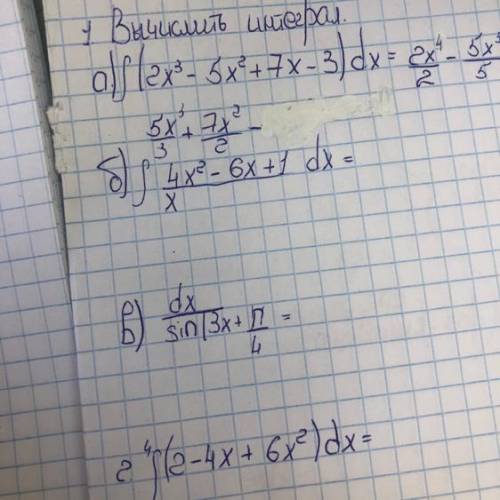 1 Вычислить интеграл.
а) ∫(2x³ - 5x² + 7x - 3)dx = 2x⁴/2 - 5x³/5
5x³/3 + 7x²/2 -
б) ∫ 4x² - 6x + 1/x dx =
в) dx/sin(3x + π/4 =
г ⁴∫(2 - 4x + 6x²)dx =